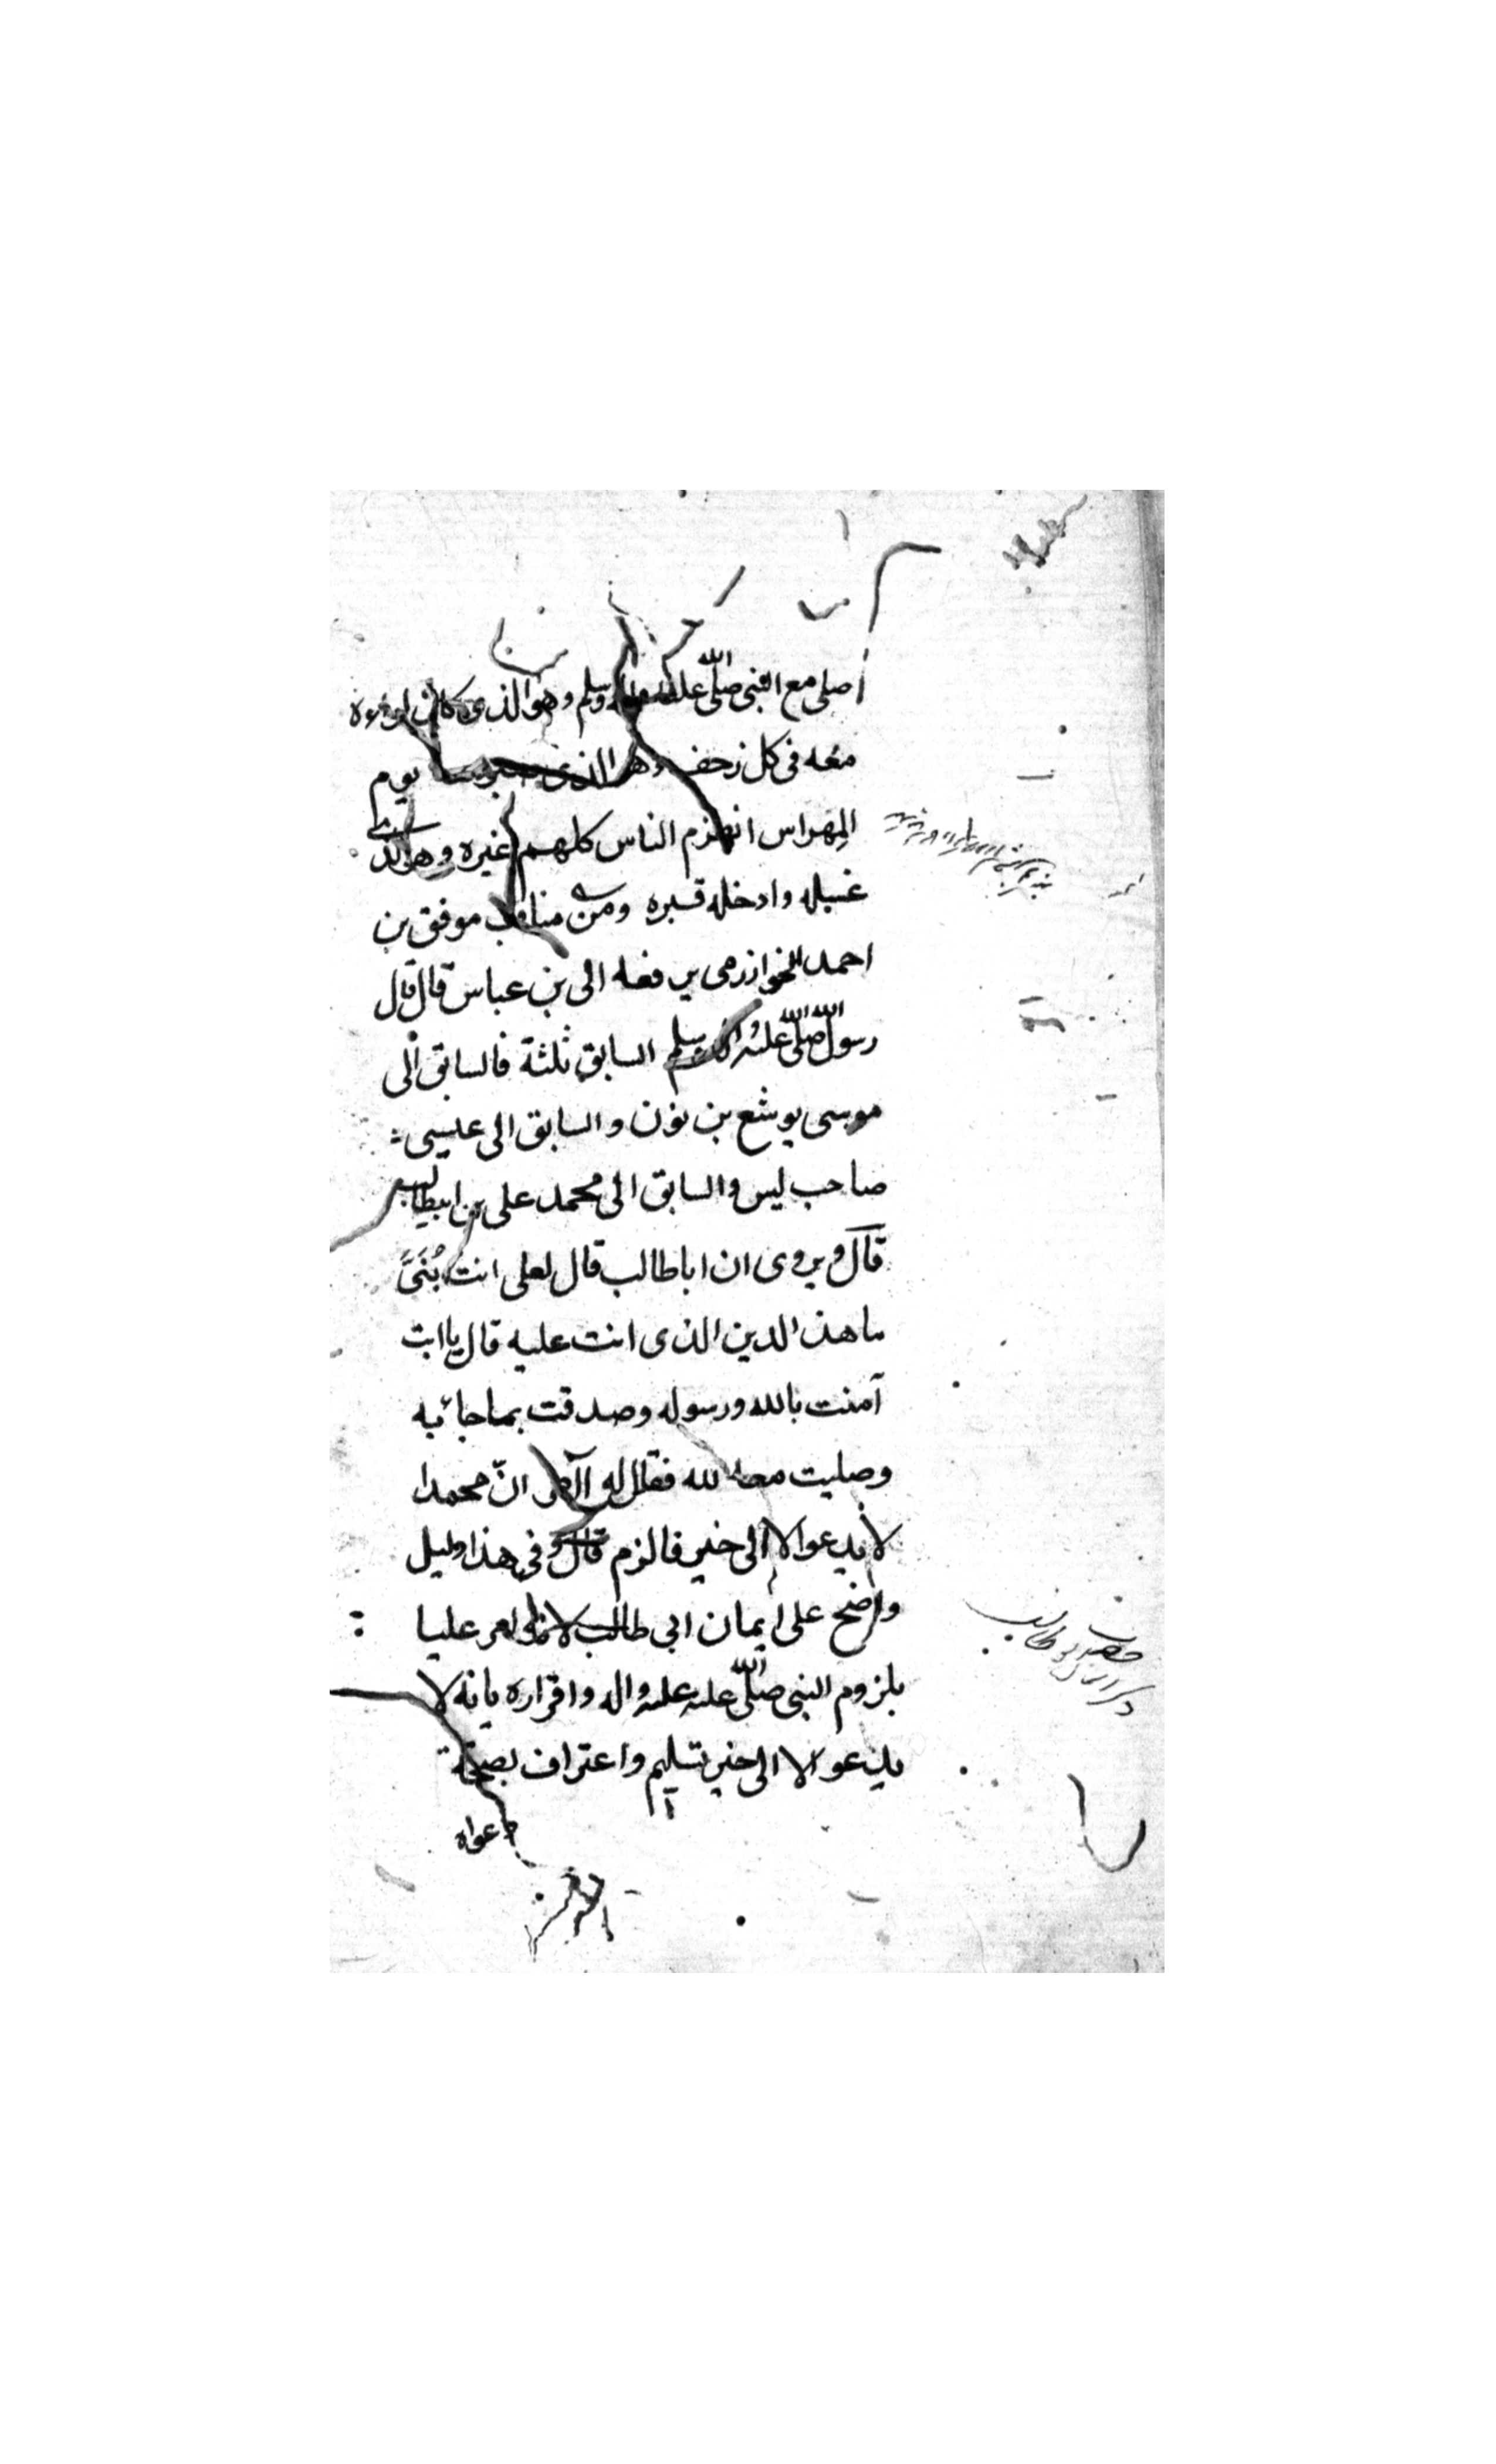 صلى مع النبى صلى الله عليه واله وسلم وهو الذى كان لواءه
معه فى كل زحف وهو الذى صبر معه يوم
المهراس انهزم الناس كلهم غيره وهو الذى
غسله وادخله قبره ومن مناقب موفق بن
احمد الخوازرمى يرفعه الى بن عباس قال قال
رسول الله صلى الله عليه واله وسلم السابق ثلثة فالسابق الى
موسى يوشع بن نون والسابق الى عيسى
صاحب ليس والسابق الى محمد على بن ابيطالب
قال ويروى ان ابا طالب قال لعلى انت بُنَىَّ
ما هذ الدين الذى انت عليه قال يا ابت
آمنت بالله ورسوله وصدقت بما جائبه
وصليت معه لله فقال له انّ محمدا
لا يدعوا الا الى خير فالزم قال وفى هذا دليل
واضح على ايمان ابى طالب لانه امر عليا
بلزوم النبى صلى الله عليه عليه واله واقراره بانه لا
يدعو الا الى خير تسليم واعتراف بصحة
دعواه